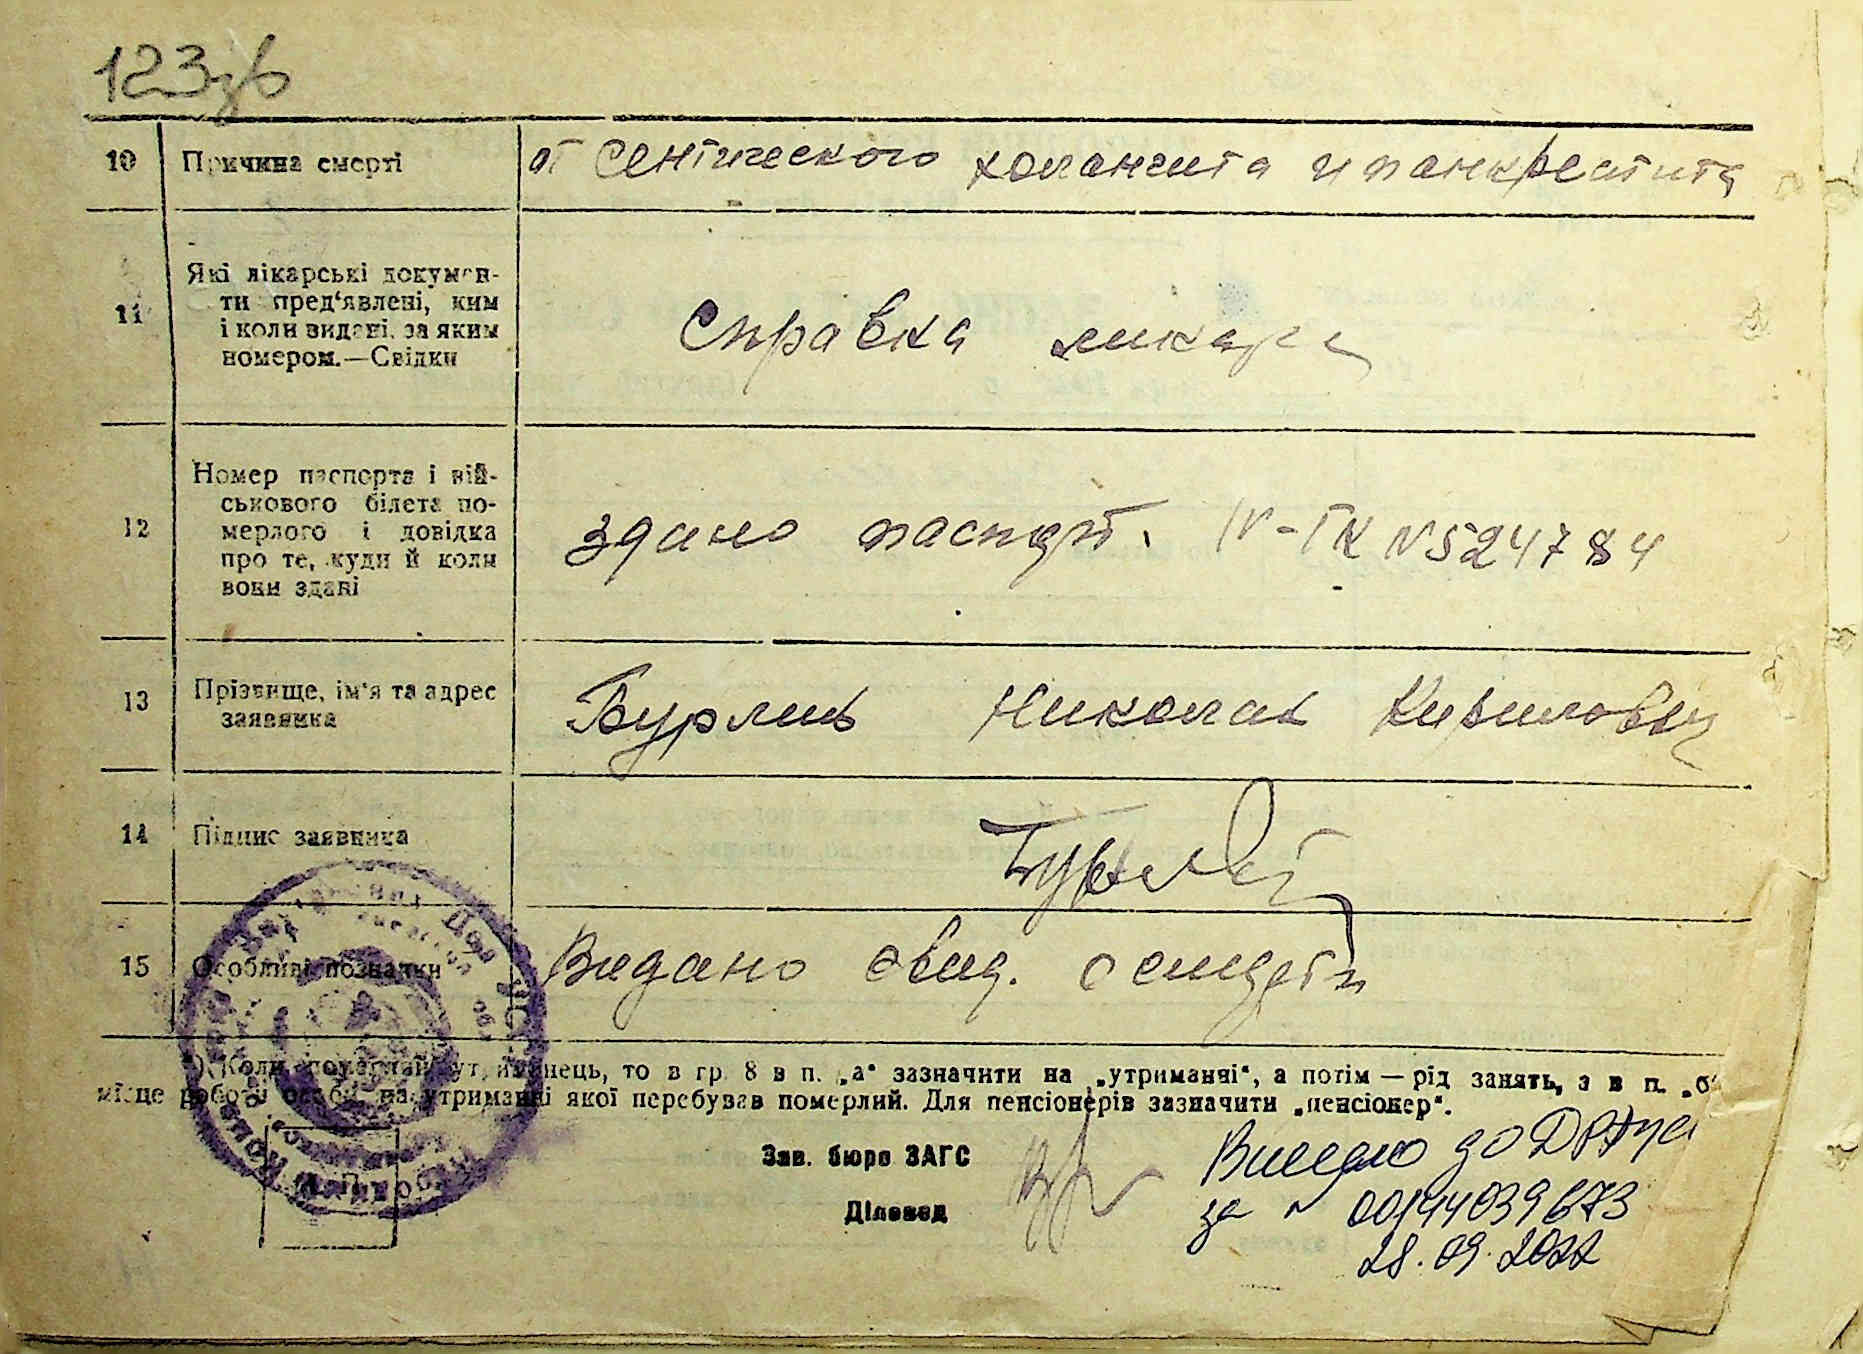 123зв
10 Причина смерті от септического холангита и панкреатита
11 Які лікарські докумен-
ти пред'явлені, ким
і коли видані, за яким
номером.—Свідки
Справка ликаря
12 Номер паспорта і вій-
ськового білета по-
мерлого і довідка
про те, куди й коли
вони здані
здано паспорт. IV-ГК N 524784
13 Прізвище, ім'я та адрес
заявника
Бурлий Николай Кирилович
14 Підпис заявника
15 Особливі познаки Видано свид. о смерти
*) Коли померлий утриманець, то в гр. 8 в п. „а" зазначити на „утриманні", а потім — рід занять, з в п. „б"
місце роботи особи, на утриманні якої перебував померлий. Для пенсіонерів зазначити „пенсіонер".
Зав. бюро ЗАГС
Діловод
М. П.
Внесено до ДРАЦС
за № 00144039673
28.09.2022